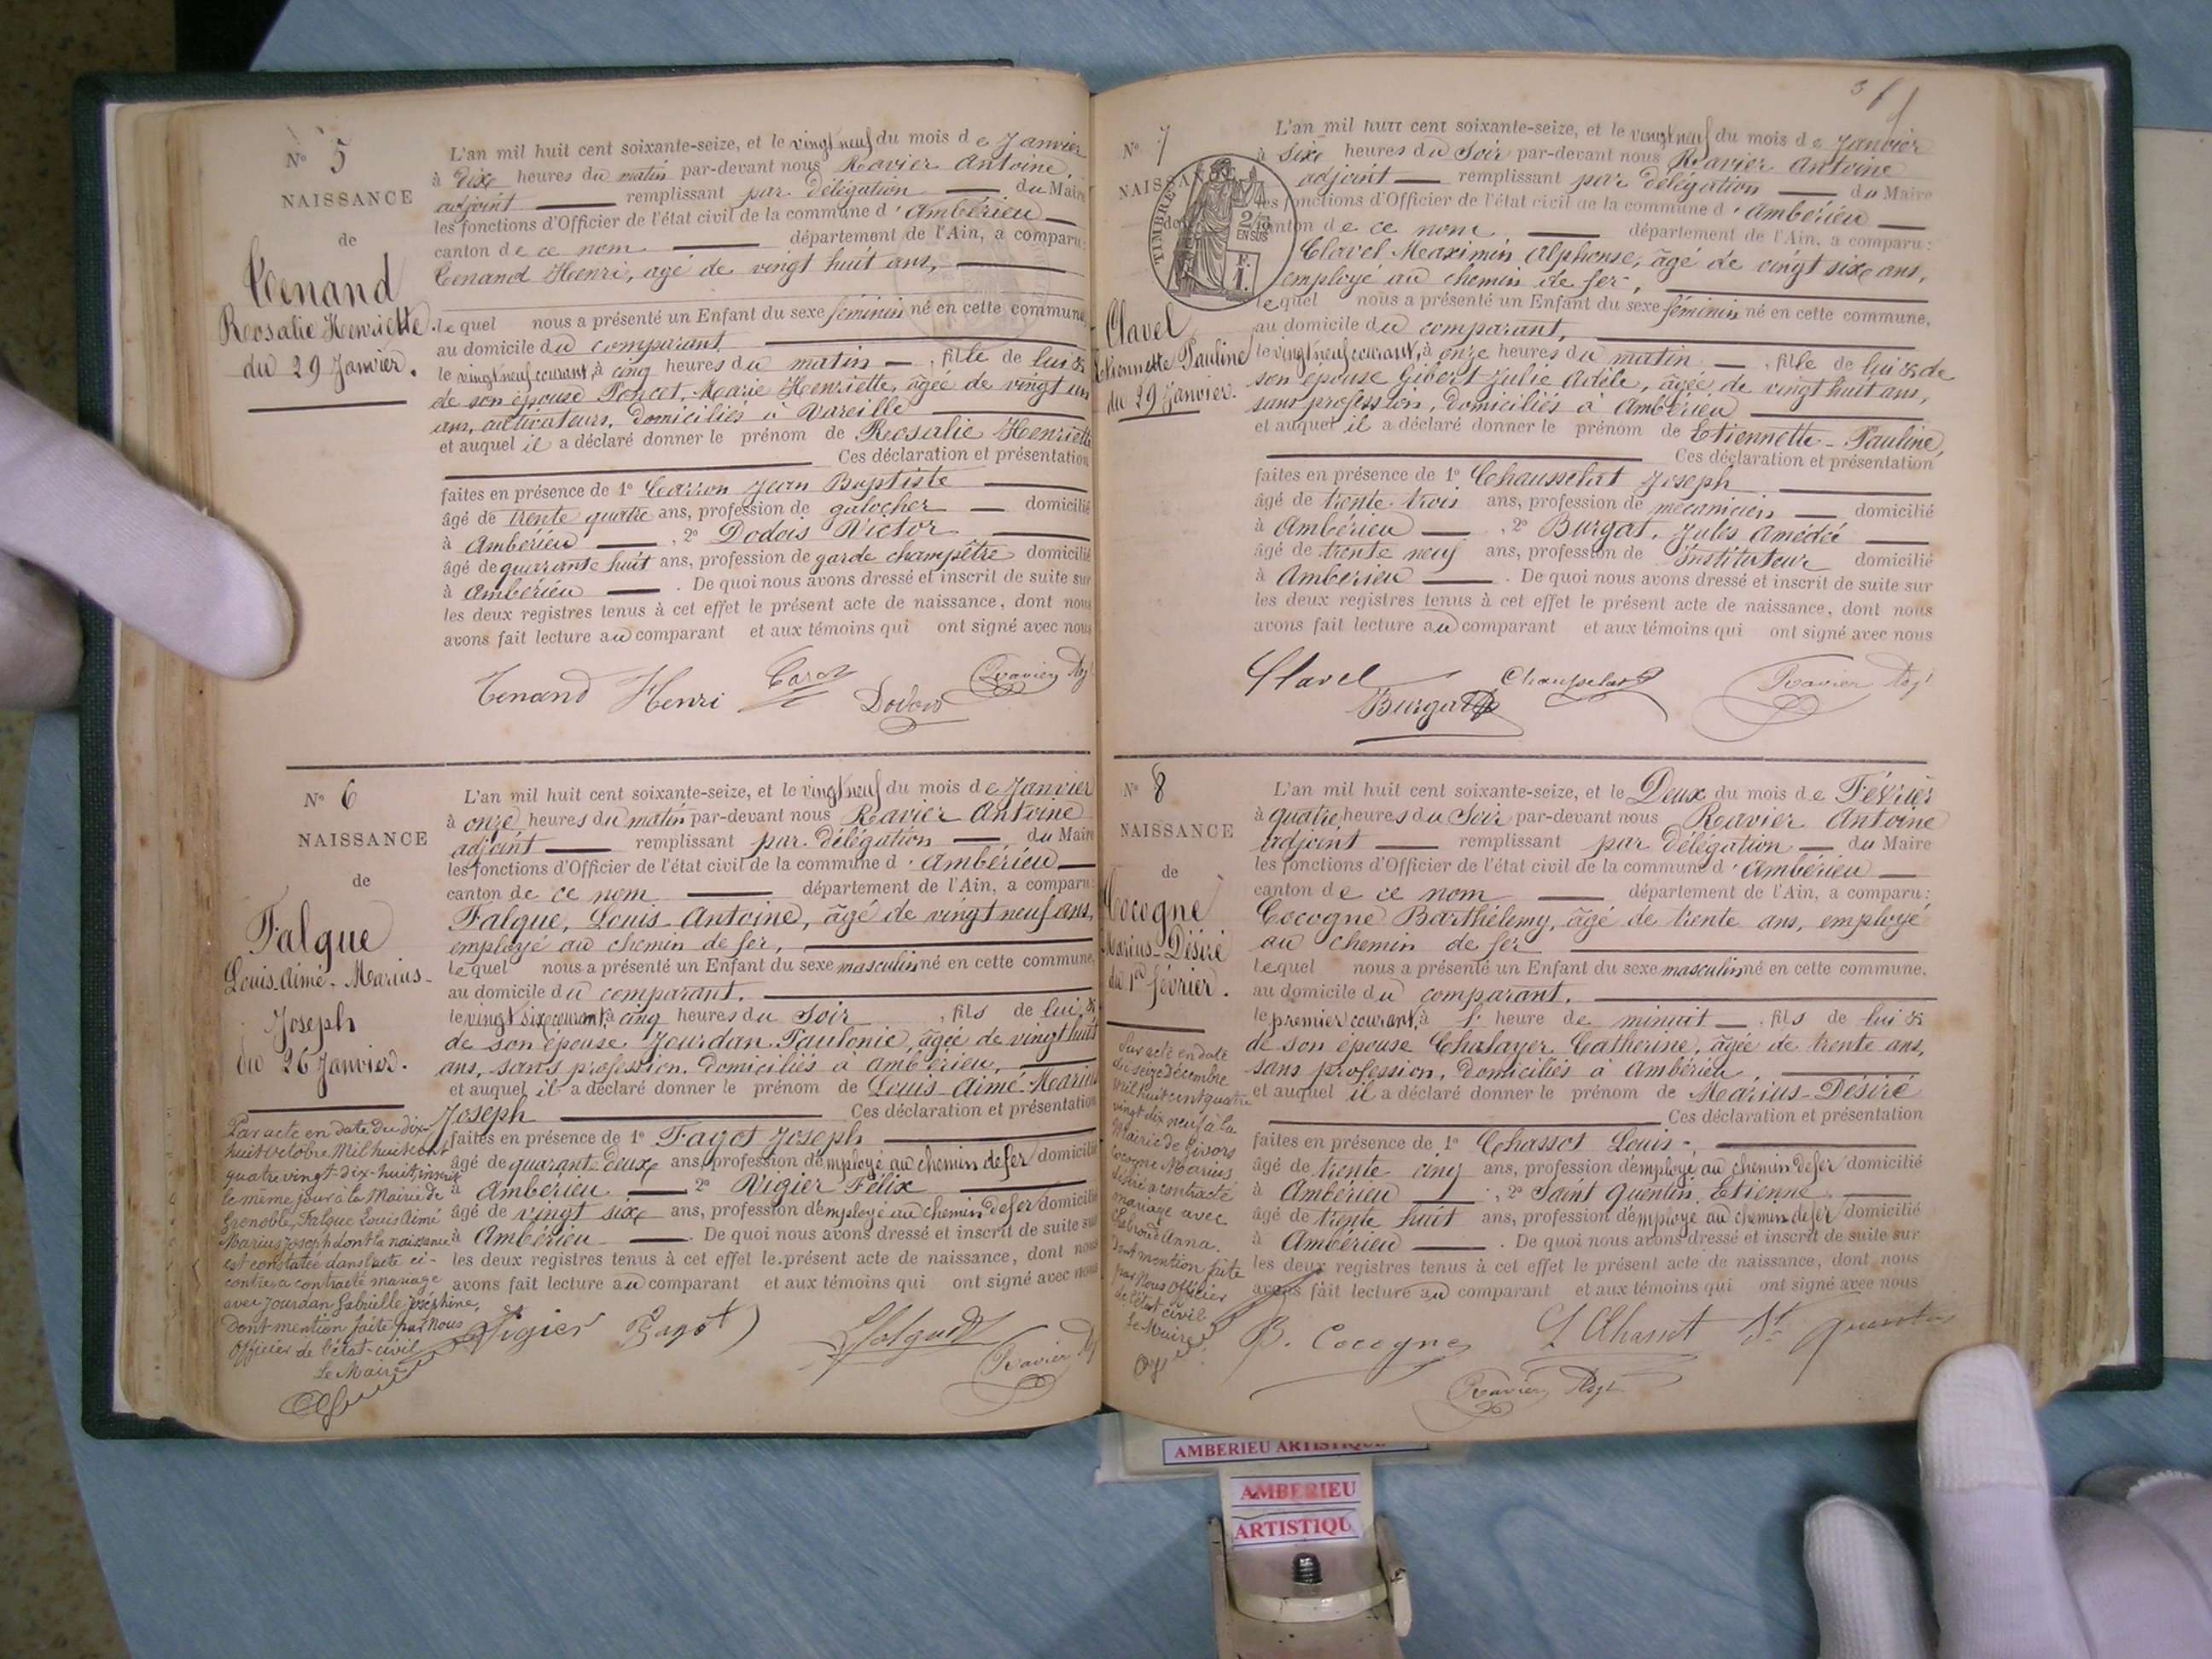 N° 5
NAISSANCE
de
Tenand
Rosalie Henriette
du 29 Janvier.
L'an mil huit cent soixante-seize, et le vingt neuf du mois de Janvier
à dix heures du matin par-devant nous Ravier Antoine,
adjoint remplissant par délégation du Maire
les fonctions d'Officier de l'état civil de la commune d'Ambérieu
canton de ce nom département de l'Ain, a comparu:
Tenand Henri, agé de vingt huit ans,
lequel nous a présenté un Enfant du sexe féminin né en cette commune,
au domicile du comparant
le vingt neuf courant, à cinq heures du matin, fille de lui &
de son épouse Poncet, Marie Henriette, agée de vingt un
ans, cultivateurs, domiciliés à Vareille
et auquel il a déclaré donner le prénom de Rosalie Henriette
Ces déclaration et présentation
faites en présence de 1° Carron Jean Baptiste
âgé de trente quatre ans, profession de galocher domicilié
à Ambérieu, 2° Dodois Victor
âgé de quarante huit ans, profession de garde champêtre domicilié
à Ambérieu. De quoi nous avons dressé et inscrit de suite sur
les deux registres tenus à cet effet le présent acte de naissance, dont nous
avons fait lecture au comparant et aux témoins qui ont signé avec nous
Tenand Henri Caron Dodois Ravier Adj!
N° 6
NAISSANCE
de
Falque
Louis-Aimé-Marius-
Joseph
du 26 Janvier.
Par acte en date du dix-
huit octobre Mil huit cent
quatre vingt-dix-huit, inscrit
le même jour à la Mairie de
Grenoble, Falque Louis Aimé
Marius Joseph dont la naissance
est constatée dans l'acte ci-
contre a contracté mariage
avec Jourdan Gabrielle Joséphine,
Dont mention faite par Nous
Officier de l'état-civil
Le Maire
L'an mil huit cent soixante-seize, et le vingt neuf du mois de Janvier
à onze heures du matin par-devant nous Ravier Antoine
adjoint remplissant par délégation du Maire
les fonctions d'Officier de l'état civil de la commune d'Ambérieu
canton de ce nom département de l'Ain, a comparu:
Falque, Louis Antoine, âgé de vingt neuf ans,
employé au chemin de fer,
lequel nous a présenté un Enfant du sexe masculin né en cette commune,
au domicile du comparant.
le vingt six courant, à cinq heures du Soir, fils de lui &
de son épouse Jourdan Paulonie, âgée de vingt huit
ans, sans profession, domiciliés à Ambérieu,
et auquel il a déclaré donner le prénom de Louis-Aimé-Marius
Joseph Ces déclaration et présentation
faites en présence de 1° Fayot Joseph
âgé de quarante deux ans, profession d'employé au chemin de fer domicilié
à Ambérieu 2° Vigier Félix
âgé de vingt six ans, profession d'employé au chemin de fer domicilié
à Ambérieu. De quoi nous avons dressé et inscrit de suite sur
les deux registres tenus à cet effet le présent acte de naissance, dont nous
avons fait lecture au comparant et aux témoins qui ont signé avec nous
Vigier Fayot Falque Ravier Adj
N° 7
NAISSA
TIMBRE
2/10
EN SUS
F.
1.
Clavel
Etiennette Pauline
du 29 Janvier.
L'an mil huit cent soixante-seize, et le vingt neuf du mois de Janvier
à six heures du Soir par-devant nous Ravier Antoine
adjoint remplissant par délégation du Maire
les fonctions d'Officier de l'état civil de la commune d'Ambérieu
canton de ce nom département de l'Ain, a comparu:
Clavel Maximin Alphonse, âgé de vingt six ans,
employé au chemin de fer,
lequel nous a présenté un Enfant du sexe féminin né en cette commune,
au domicile du comparant,
le vingt neuf courant, à onze heures du matin, fille de lui & de
son épouse Gibert Julie Adèle, âgée de vingt huit ans,
sans profession, domiciliés à Ambérieu
et auquel il a déclaré donner le prénom de Etiennette-Pauline,
Ces déclaration et présentation
faites en présence de 1° Chausselat Joseph
âgé de trente trois ans, profession de mécanicien domicilié
à Ambérieu, 2° Burgat, Jules Amédée
âgé de trente neuf ans, profession de Instituteur domicilié
à Ambérieu. De quoi nous avons dressé et inscrit de suite sur
les deux registres tenus à cet effet le présent acte de naissance, dont nous
avons fait lecture au comparant et aux témoins qui ont signé avec nous
Clavel Chausselat Ravier Adj!
Burgat
N° 8
NAISSANCE
de
Cocogne
Marius-Désiré
du 1er février.
Par acte en date
du seize Décembre
mil huit cent quatre
vingt dix neuf à la
Mairie de Givors
Cocogne Marius
Désiré a contracté
mariage avec
Chabroud Anna.
Dont mention faite
par Nous Officier
de l'état civil
Le Maire
L'an mil huit cent soixante-seize, et le Deux du mois de Février
à quatre heures du Soir par-devant nous Ravier Antoine
adjoint remplissant par délégation du Maire
les fonctions d'Officier de l'état civil de la commune d'Ambérieu
canton de ce nom département de l'Ain, a comparu:
Cocogne Barthélemy, âgé de trente ans, employé
au chemin de fer
lequel nous a présenté un Enfant du sexe masculin né en cette commune,
au domicile du comparant,
le premier courant, à l'heure de minuit, fils de lui &
de son épouse Chalayer Catherine, âgée de trente ans,
sans profession, domiciliés à Ambérieu,
et auquel il a déclaré donner le prénom de Marius-Désiré
Ces déclaration et présentation
faites en présence de 1° Chassot Louis,
âgé de trente cinq ans, profession d'employé au chemin de fer domicilié
à Ambérieu, 2° Saint Quentin, Etienne
âgé de trente huit ans, profession d'employé au chemin de fer domicilié
à Ambérieu. De quoi nous avons dressé et inscrit de suite sur
les deux registres tenus à cet effet le présent acte de naissance, dont nous
avons fait lecture au comparant et aux témoins qui ont signé avec nous
B. Cocogne L Chassot St quentin
Ravier Adj!
AMBERIEU ARTISTIQUE
AMBERIEU
ARTISTIQU